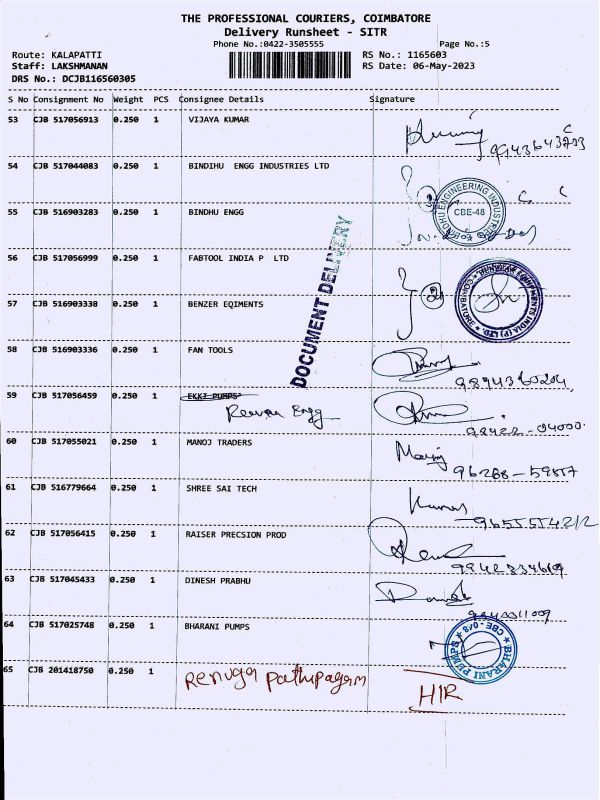 THE PROFESSIONAL COURIERS, COIMBATORE
Delivery Runsheet - SITR
Phone No.:0422-3505555 Page No.:5
Route: KALAPATTI RS No.: 1165603
Staff: LAKSHMANAN RS Date: 06-May-2023
DRS No.: DCJB116560305
S No Consignment No Weight PCS Consignee Details Signature
53 CJB 517056913 0.250 1 VIJAYA KUMAR
9943643703
54 CJB 517044083 0.250 1 BINDIHU ENGG INDUSTRIES LTD
55 CJB 516903283 0.250 1 BINDHU ENGG
CBE-48
56 CJB 517056999 0.250 1 FABTOOL INDIA P LTD
DOCUMENT DELIVERY
57 CJB 516903338 0.250 1 BENZER EQIMENTS
58 CJB 516903336 0.250 1 FAN TOOLS
9894360204
59 CJB 517056459 0.250 1 EKKI PUMPS
Engg
98422-04000
60 CJB 517055021 0.250 1 MANOJ TRADERS
Manoj
96268-59857
61 CJB 516779664 0.250 1 SHREE SAI TECH
Kumar
62 CJB 517056415 0.250 1 RAISER PRECSION PROD
63 CJB 517045433 0.250 1 DINESH PRABHU
64 CJB 517025748 0.250 1 BHARANI PUMPS
BHARANI PUMPS CBE-048
65 CJB 201418750 0.250 1 Renuga pathipagam
HIR